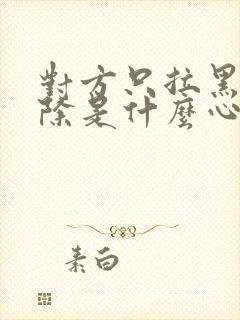 對方只拉黑
除是什麼心
素白